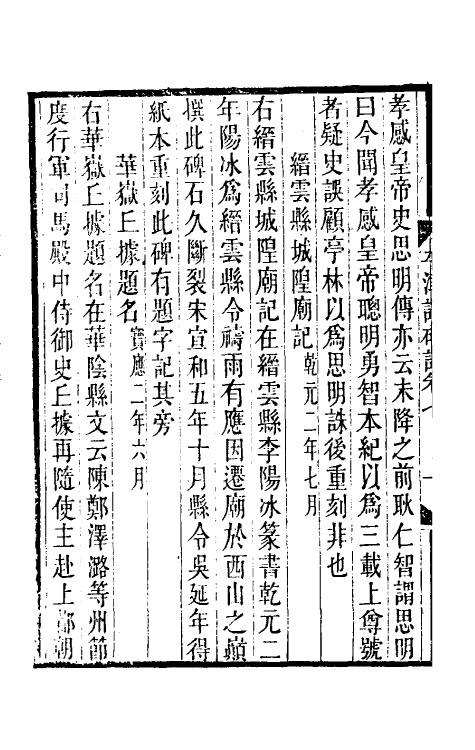 孝感皇帝史思明傳亦云未降之前耿仁智謂思明
曰今聞孝感皇帝聰明勇智本紀以爲三載上尊號
者疑史誤顧亭林以爲思明誅後重刻非也
縉雲縣城隍廟記乾元二年七月
右縉雲縣城隍廟記在縉雲縣李陽冰篆書乾元二
年陽冰爲縉雲縣令禱雨有應因遷廟於西山之巔
撰此碑石久斷裂宋宣和五年十月縣令吳延年得
紙本重刻此碑有題字記其旁
華嶽丘據題名寶應二年六月
右華嶽丘據題名在華陰縣文云陳鄭澤潞等州節
度行軍司馬殿中侍御史丘據再隨使主赴上都朝